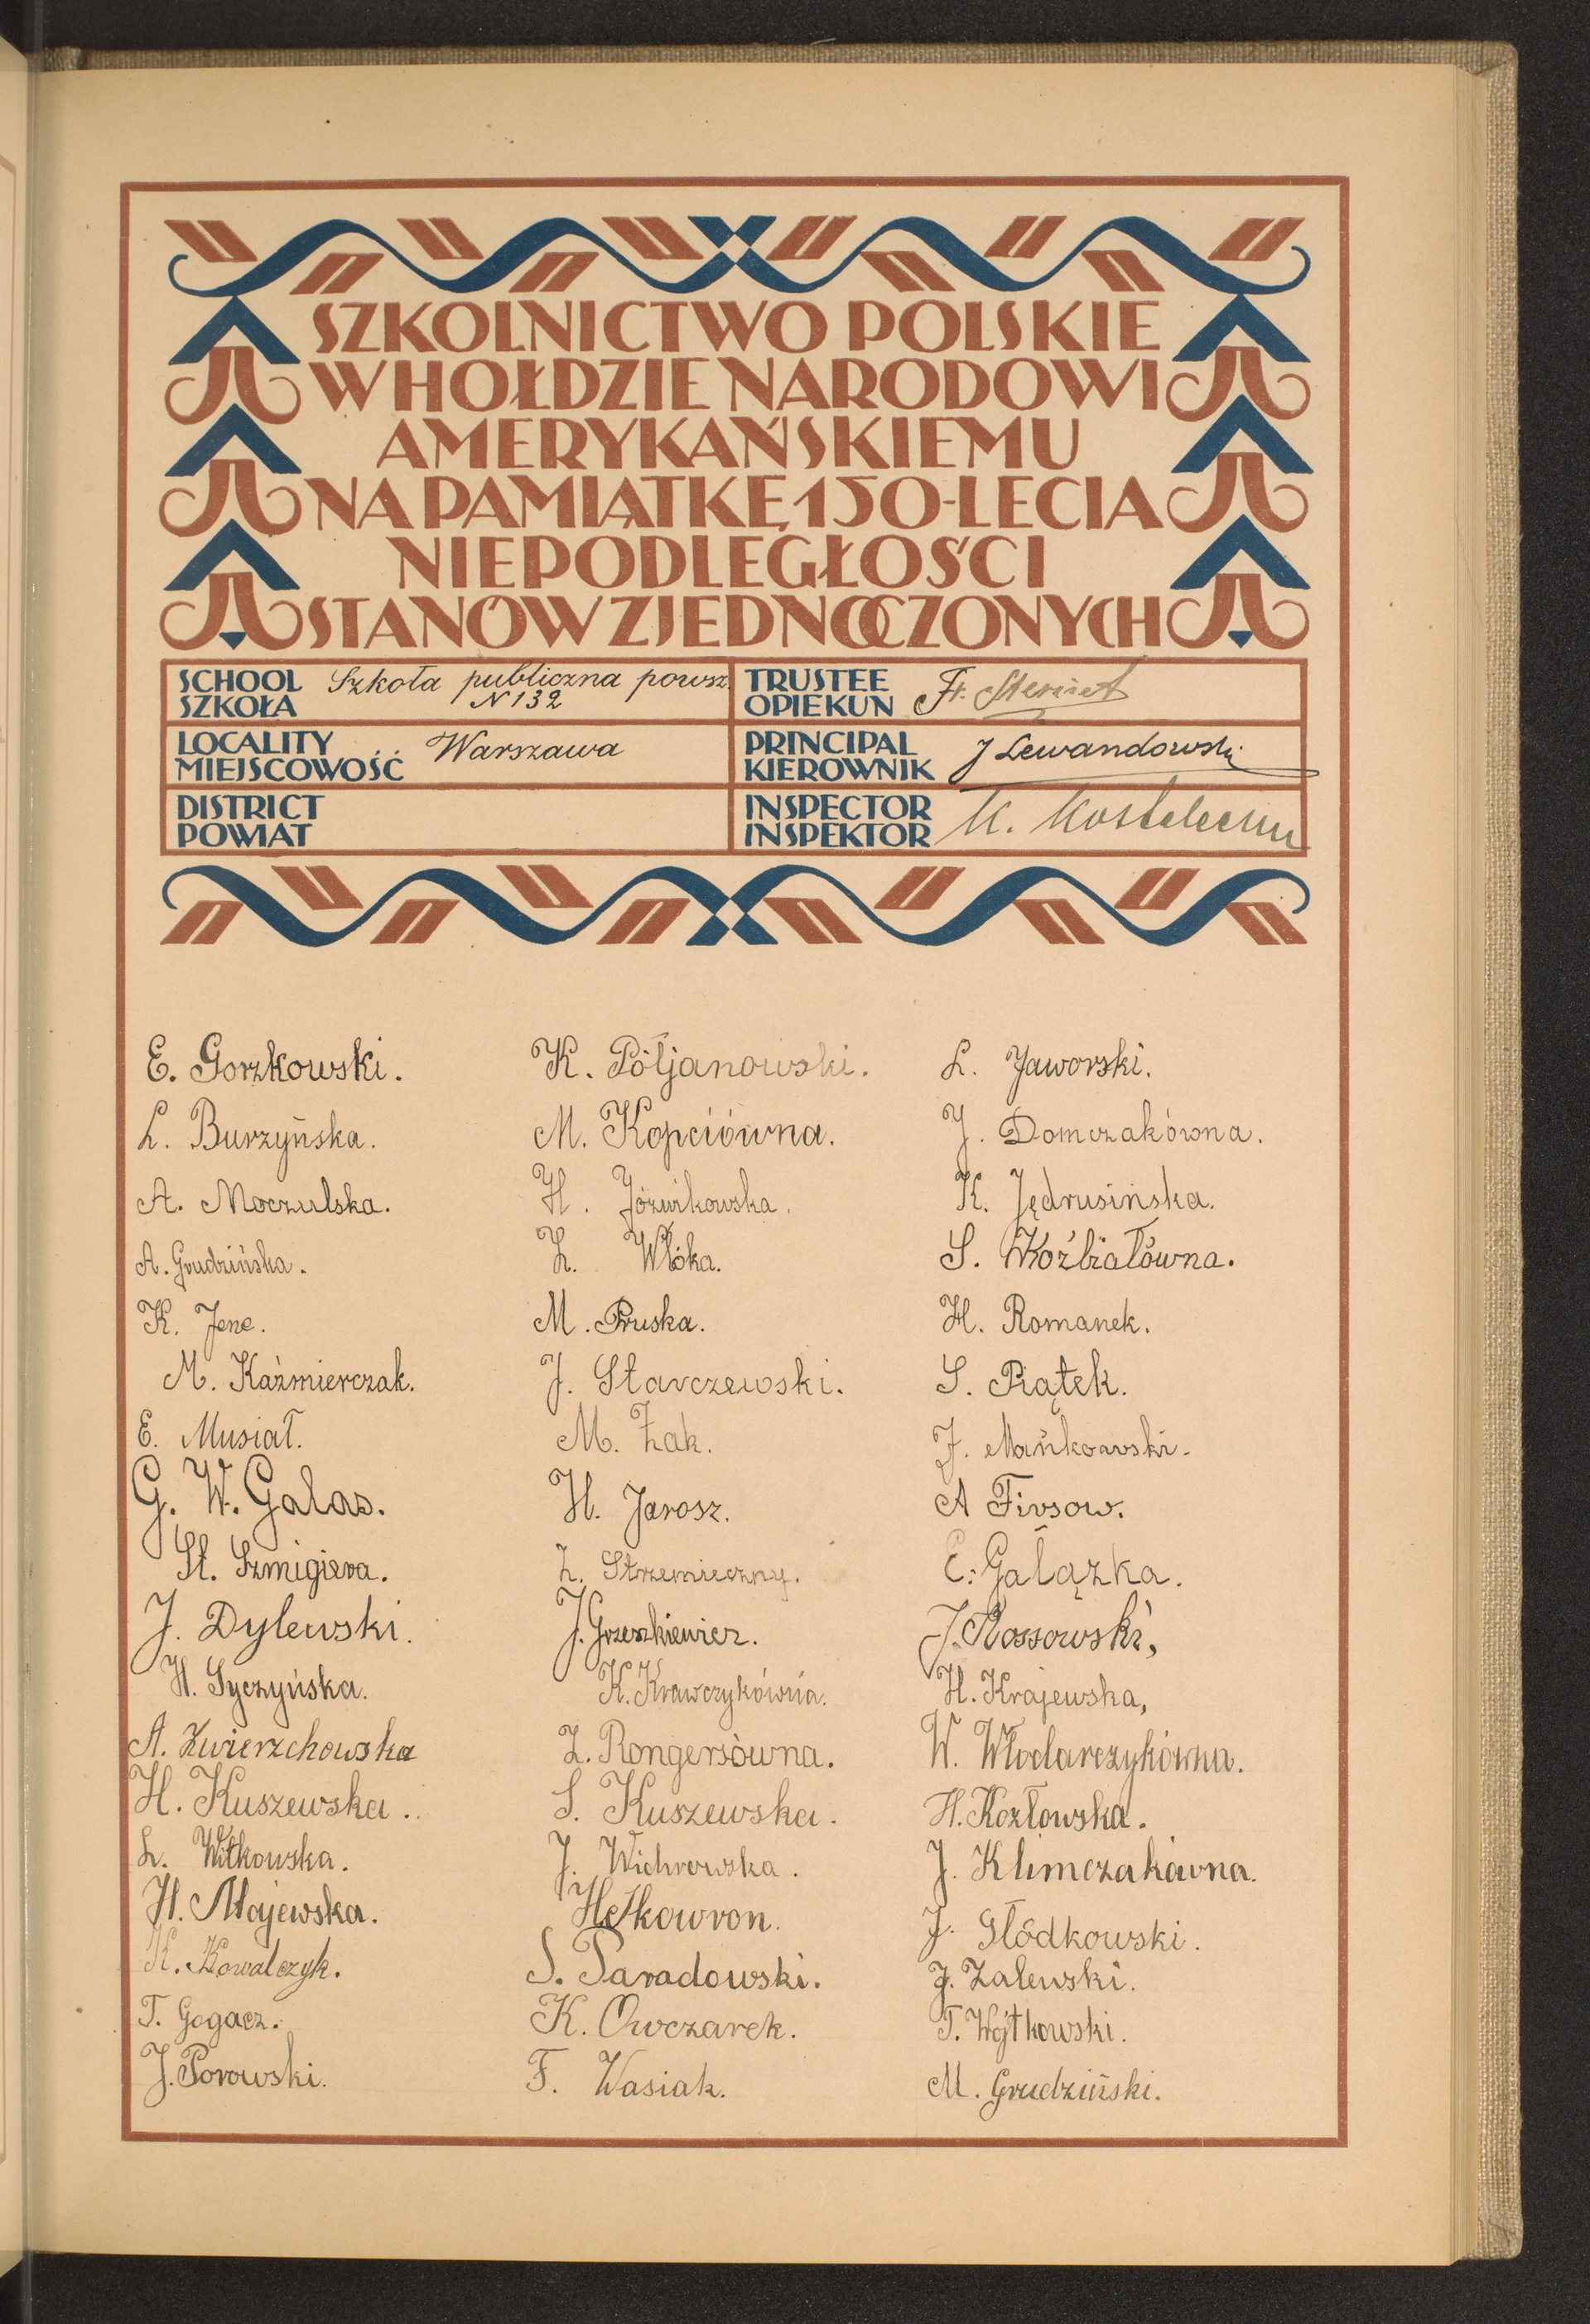 SZKOLNICTWO POLSKIE
W HOŁDZIE NARODOWI
AMERYKAŃSKIEMU
NA PAMIĄTKĘ 150-LECIA
NIEPODLEGŁOŚCI
STANÓW ZJEDNOCZONYCH
SCHOOL
SZKOŁA
Szkoła publiczna powsz.
N 132
TRUSTEE
OPIEKUN
Fr.
LOCALITY
MIEJSCOWOŚĆ
Warszawa
PRINCIPAL
KIEROWNIK
J Lewandowski
DISTRICT
POWIAT
INSPECTOR
INSPEKTOR
K.
E. Gorzkowski.
L. Burzyńska.
A. Moczulska.
A. Grudzińska.
K. Jene.
M. Kaźmierczak.
E. Musiał.
G. W. Galas.
St. Szmigiera.
J. Dylewski.
H. Syczyńska.
A. Zwierzchowska
H. Kuszewska.
L. Witkowska.
H. Majewska.
K. Kowalczyk.
T. Gogacz.
J. Porowski.
K. Półjanowski.
M. Kopciówna.
H. Jóźwikowska.
Z. Włóka.
M. Pruska.
J. Starczewski.
M. Żak.
H. Jarosz.
Z. Strzemieczny.
J. Grzeszkiewicz.
K. Krawczykówna.
Z. Rongersówna.
S. Kuszewska.
J. Wichrowska.
H Skowron.
S. Paradowski.
K. Owczarek.
F. Wasiak.
L. Jaworski.
J. Domczakówna.
K. Jędrusińska.
S. Woźbiałówna.
H. Romanek.
S. Piątek.
J. Mańkowski.
A Firsow.
E. Galązka.
J. Rossowski,
H. Krajewska,
W. Włodarczykówna.
H. Kozłowska.
J. Klimczakówna.
J. Głódkowski.
J. Zalewski.
T. Wójtkowski.
M. Grudziński.